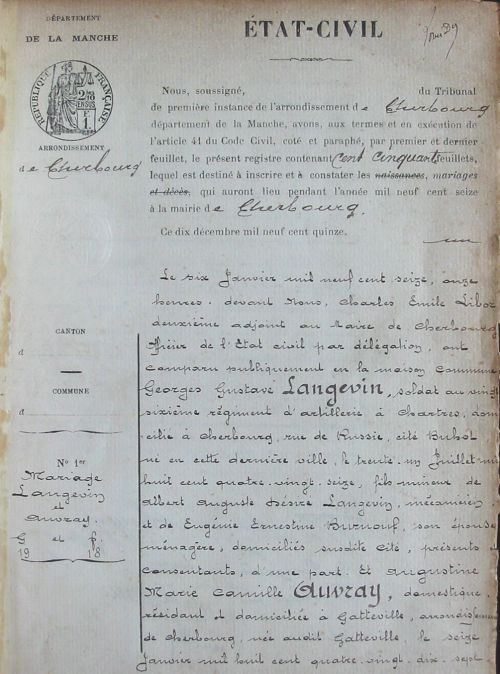 DÉPARTEMENT
DE LA MANCHE
RÉPUBLIQUE FRANÇAISE
ARRONDISSEMENT
de Cherbourg
ÉTAT-CIVIL
Nous, soussigné, du Tribunal
de première instance de l'arrondissement de Cherbourg
département de la Manche, avons, aux termes et en exécution de
l'article 41 du Code Civil, coté et paraphé, par premier et dernier
feuillet, le présent registre contenant Cent Cinquante feuillets,
lequel est destiné à inscrire et à constater les naissances, mariages
et décès, qui auront lieu pendant l'année mil neuf cent seize
à la mairie de Cherbourg.
Ce dix décembre mil neuf cent quinze.
CANTON
d
COMMUNE
d
N° 1er
Mariage
Langevin
et
Auvray.
G et f.
19 18
Le six Janvier mil neuf cent seize, onze
heures. devant Nous, Charles Emile
deuxième adjoint au Maire de Cherbourg
officier de l'Etat civil par délégation, ont
comparu publiquement en la maison commune
Georges Gustave Langevin, soldat au vingt
sixième régiment d'artillerie à Chartres, dom
icilié à Cherbourg, rue de Russie, cité
né en cette dernière ville, le trente-un Juillet mil
huit cent quatre-vingt-seize, fils mineur de
Albert Auguste Désiré Langevin, mécanicien,
et de Eugénie Ernestine Burnouf, son épouse
ménagère, domiciliés susdite Cité, présents et
consentants, d'une part. Et Augustine
Marie Camille Auvray, domestique,
résidant et domiciliée à Gatteville, arrondissement
de Cherbourg, née audit Gatteville, le seize
Janvier mil huit cent quatre-vingt-dix-sept